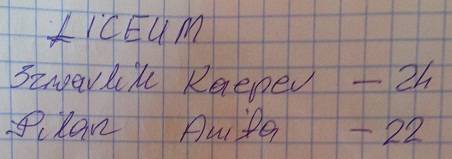 LICEUM
Kacper - 24
Pilar Anita - 22